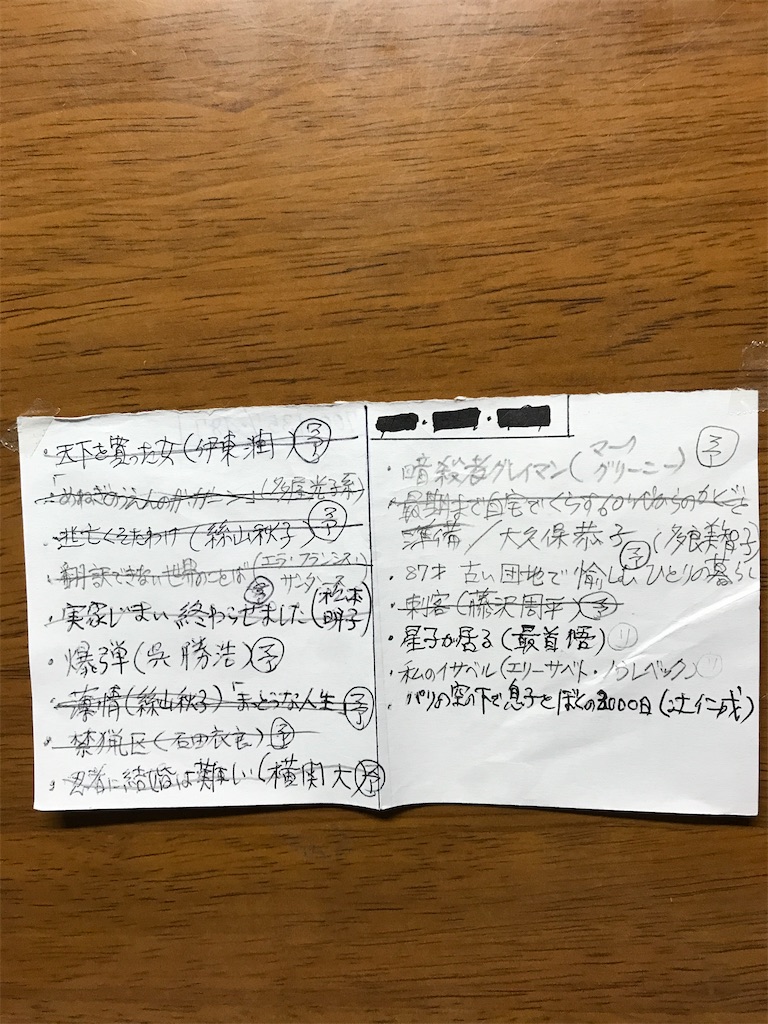 ・天下を買った女(伊東潤)予
・「めねぎのうえんのガ・ガ・ガーン」(多屋光子系)
・逃亡くそたわけ(絲山秋子)予
・翻訳できない世界のことば(エラ・フランシス・
サンダース)予
・実家じまい終わらせました(松本
明子)
・爆弾(呉勝浩)予
・薄情(絲山秋子)「まっとうな人生」予
・禁猟区(石田衣良)予
・忍者に結婚は難しい(横関大)予
・暗殺者グレイマン(マーク
グリーニー)予
・最期まで自宅でくらす60
準備/大久保恭子
予(多良美智子)
・87才 古い団地で愉しむひとりの暮らし
・刺客(藤沢周平)予
・星子が居る(最首悟)リ
・私のイサベル(エリーサベト・ノウレベック)リ
・パリの空の下で息子とぼくの3000日(辻仁成)